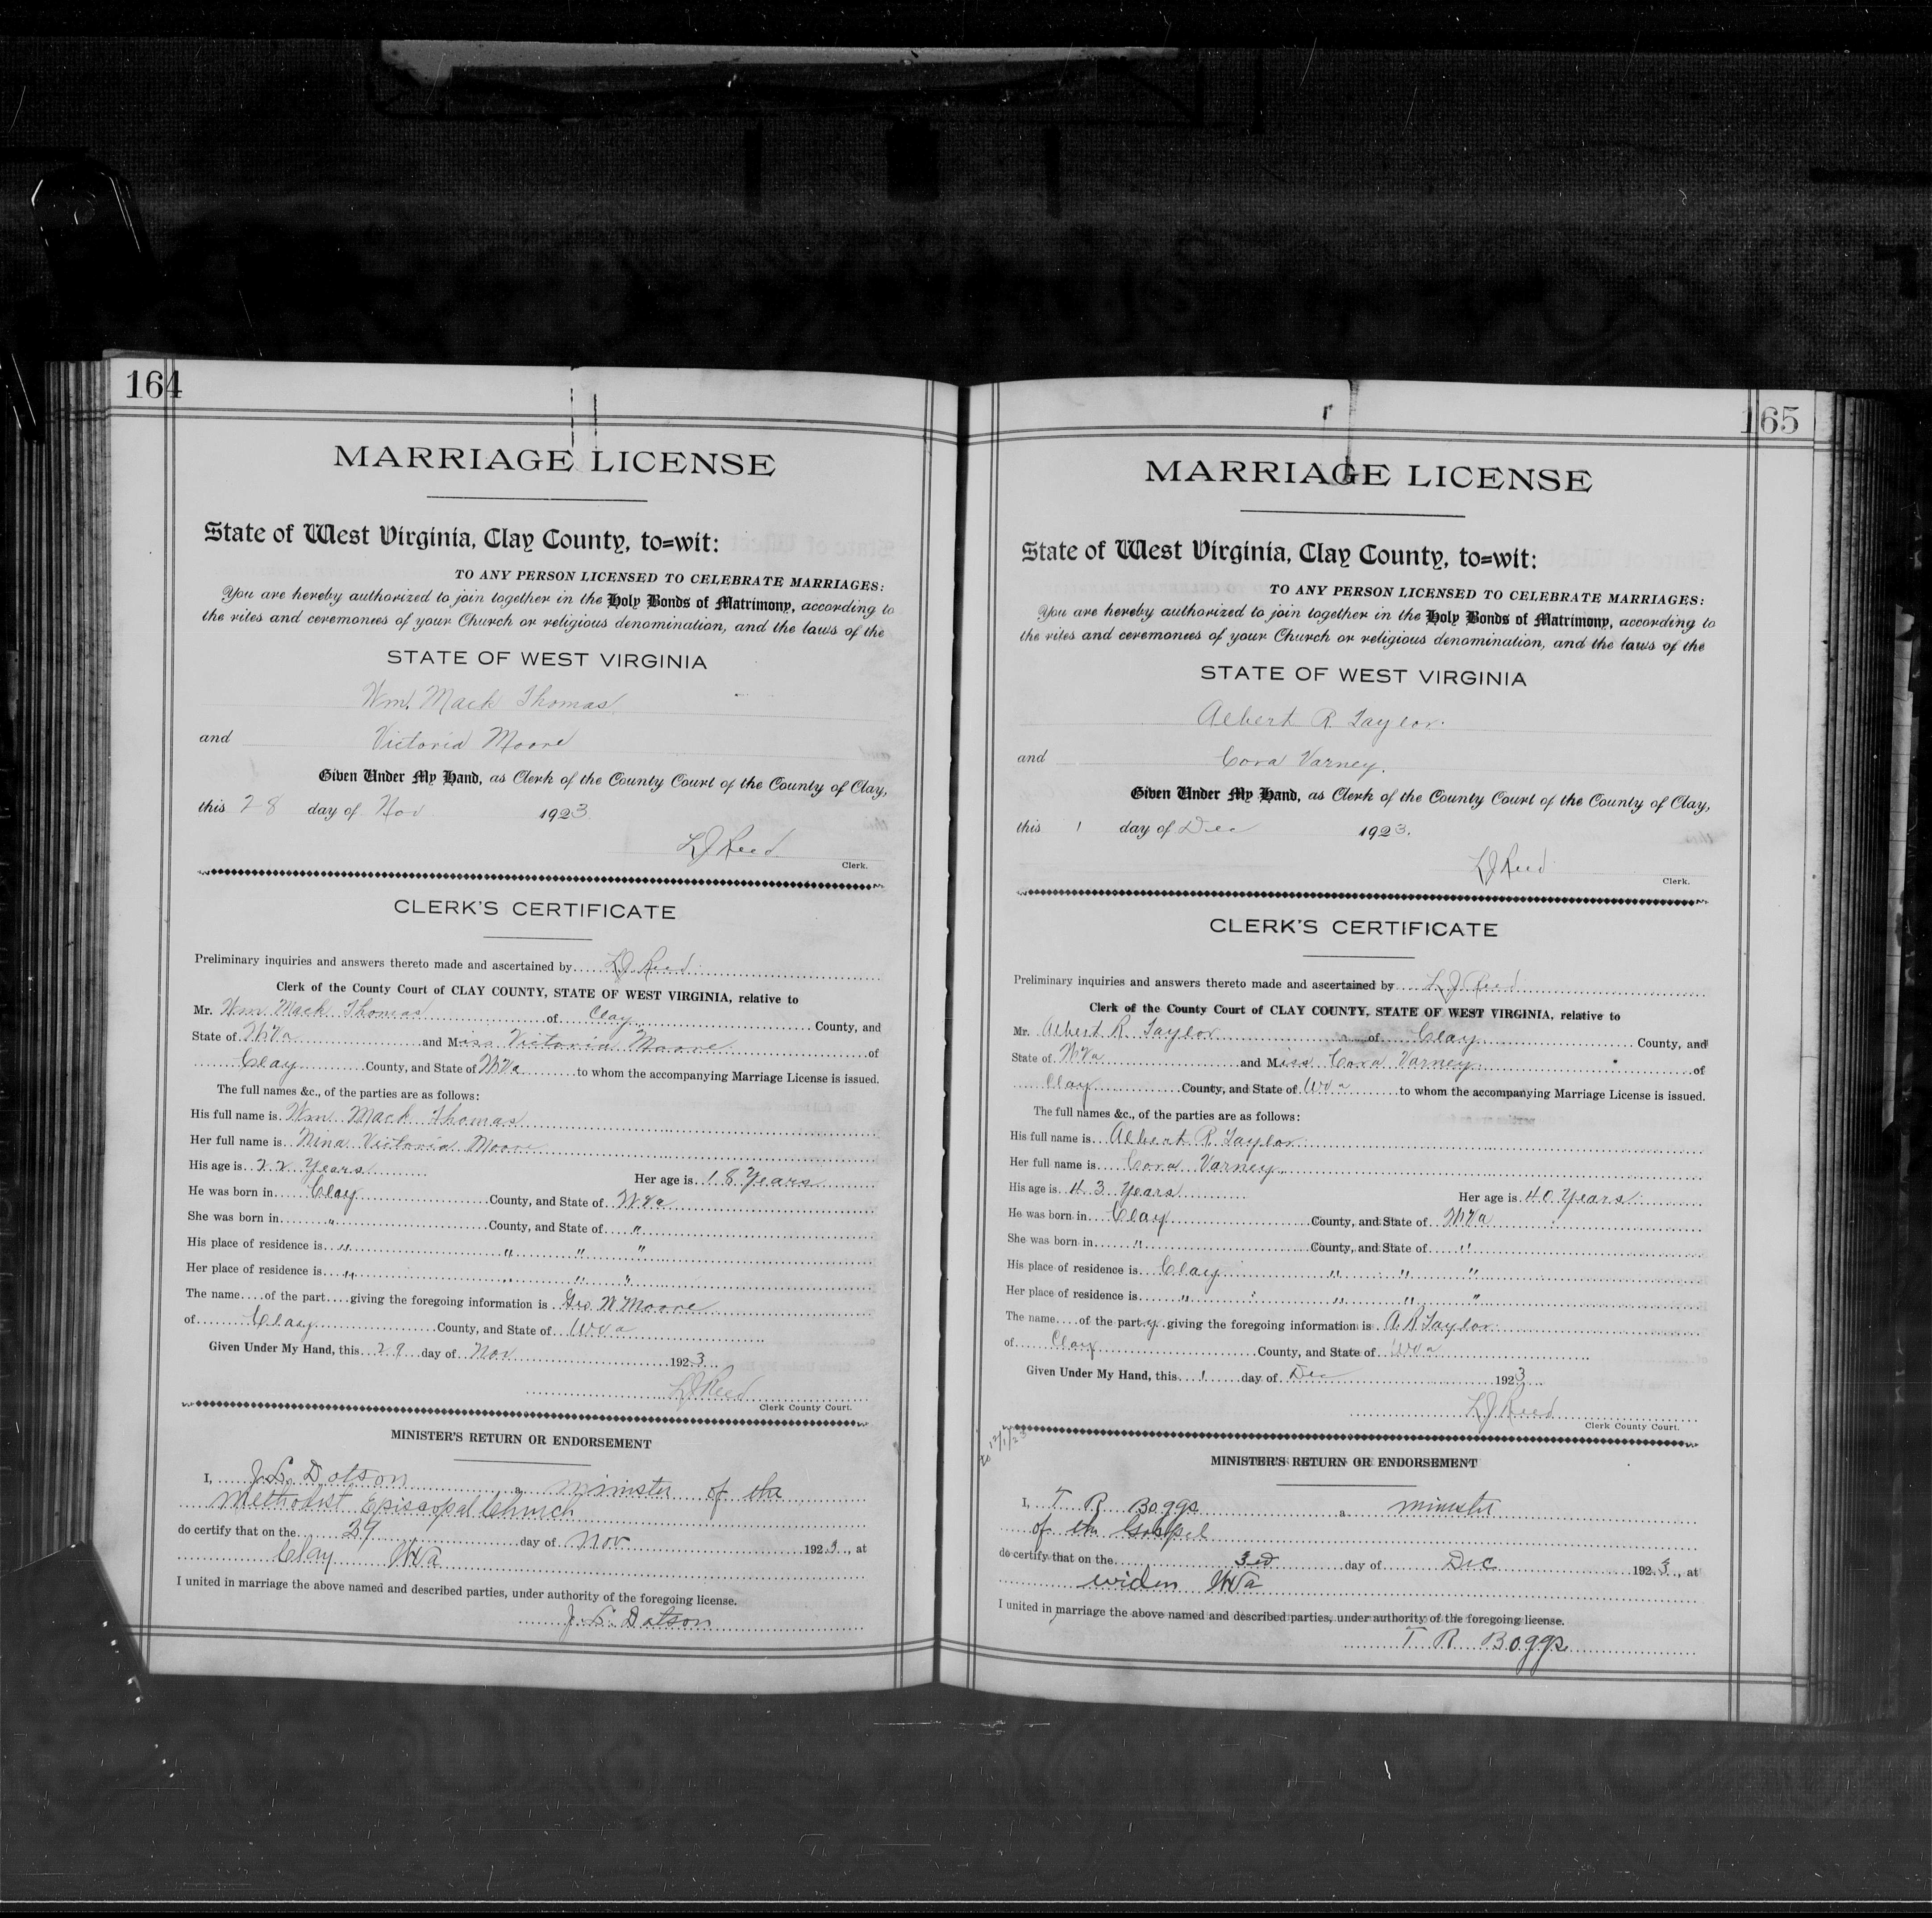 164
MARRIAGE LICENSE
State of West Virginia, Clay County, to=wit:
TO ANY PERSON LICENSED TO CELEBRATE MARRIAGES:
You are hereby authorized to join together in the Holy Bonds of Matrimony, according to
the rites and ceremonies of your Church or religious denomination, and the laws of the
STATE OF WEST VIRGINIA
Wm. Mack Thomas
and Victoria Moore
Given Under My Hand, as Clerk of the County Court of the County of Clay,
this 28 day of Nov 1923
LJ Reed
Clerk.
CLERK'S CERTIFICATE
Preliminary inquiries and answers thereto made and ascertained by LJ Reed
Clerk of the County Court of CLAY COUNTY, STATE OF WEST VIRGINIA, relative to
Mr. Wm. Mack Thomas of Clay County, and
State of WVa and Miss Victoria Moore of
Clay County, and State of WVa to whom the accompanying Marriage License is issued.
The full names &c., of the parties are as follows:
His full name is Wm Mack Thomas
Her full name is Nina Victoria Moore
His age is 22 Years Her age is 18 Years
He was born in Clay County, and State of WVa
She was born in " County, and State of "
His place of residence is " " " "
Her place of residence is " " " "
The name of the part giving the foregoing information is Geo. W Moore
of Clay County, and State of Wva
Given Under My Hand, this 29 day of Nov 1923
LJ Reed
Clerk County Court.
MINISTER'S RETURN OR ENDORSEMENT
I, J. L. Dotson a minister of the
Methodist Episcopal Church
do certify that on the 29 day of Nov 1923, at
Clay WVa
I united in marriage the above named and described parties, under authority of the foregoing license.
J. L. Dotson
165
MARRIAGE LICENSE
State of West Virginia, Clay County, to=wit:
TO ANY PERSON LICENSED TO CELEBRATE MARRIAGES:
You are hereby authorized to join together in the Holy Bonds of Matrimony, according to
the rites and ceremonies of your Church or religious denomination, and the laws of the
STATE OF WEST VIRGINIA
Albert R. Taylor.
and Cora Varney.
Given Under My Hand, as Clerk of the County Court of the County of Clay,
this 1 day of Dec 1923.
LJ Reed
Clerk.
CLERK'S CERTIFICATE
Preliminary inquiries and answers thereto made and ascertained by LJ Reed
Clerk of the County Court of CLAY COUNTY, STATE OF WEST VIRGINIA, relative to
Mr. Albert R. Taylor of Clay County, and
State of WVa and Miss Cora Varney of
Clay County, and State of Wva to whom the accompanying Marriage License is issued.
The full names &c., of the parties are as follows:
His full name is Albert R. Taylor
Her full name is Cora Varney
His age is 43 Years Her age is 40 Years
He was born in Clay County, and State of WVa
She was born in " County, and State of "
His place of residence is Clay " " "
Her place of residence is " " " "
The name of the party giving the foregoing information is A R Taylor
of Clay County, and State of Wva
Given Under My Hand, this 1 day of Dec 1923
LJ Reed
Clerk County Court.
12/1/23
MINISTER'S RETURN OR ENDORSEMENT
I, T R Boggs a minister
of the Gospel
do certify that on the 3ed day of Dec 1923, at
widen WVa
I united in marriage the above named and described parties, under authority of the foregoing license.
T R Boggs